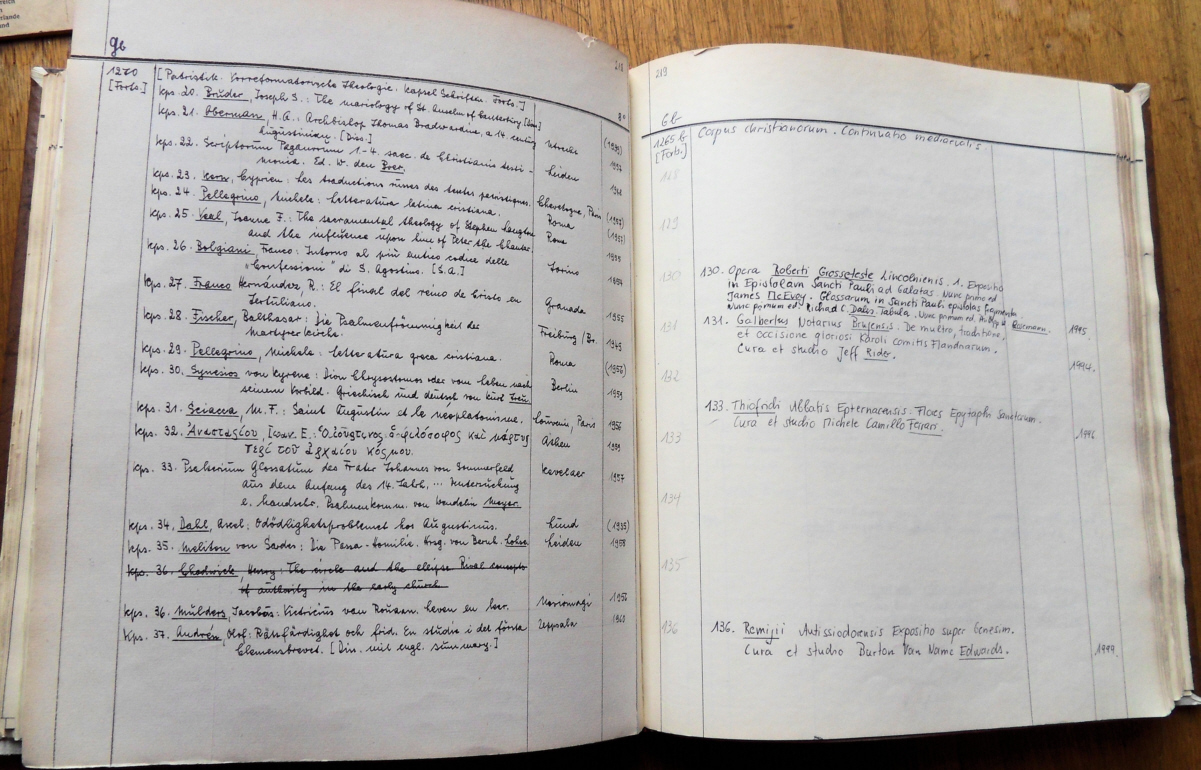 reich
rlande
nd
Gb
218
1270
[Forts.]
[Patristik. Vorreformatorische Theologie: Kapsel Schriften. Forts.]
8°
Kps. 20. Bruder, Joseph S.: The mariology of St. Anselm of Canterbury [Diss.]
(1939)
Kps. 21. Oberman, H.A.: Archbishop Thomas Bradwardine, a 14 century
Augustinian. [Diss.] Utrecht
Kps. 22. Scriptorum Paganorum 1-4. saec. de Christianis testi-
monia. Ed. W. den Boer. Leiden 1948
Kps. 23. Kern, Cyprien: Les traductions russes des textes patristiques. Chevetogne, Paris (1957)
Kps. 24. Pellegrino, Michele: Letteratura latina cristiana. Roma (1957)
Kps. 25. Veal, Joanne F.: The sacramental theology of Stephen Langton
and the influence upon him of Peter the Chanter Rom 1955
Kps. 26. Bolgiani, Franco: Intorno al più antico codice delle
"Confessioni" di S. Agostino. [S.A.] Torino 1954
Kps. 27. Franco Hernández, R.: El final del reino de Cristo en
Tertuliano. Granada 1955
Kps. 28. Fischer, Balthasar: Die Psalmenfrömmigkeit der
Martyrerkirche Freiburg / Br. 1949
Kps. 29. Pellegrino, Michele: Letteratura greca cristiana. Roma (1956)
Kps. 30. Synesios von Kyrene: Dion Chrysostomos oder vom Leben nach
seinem Vorbild. Griechisch und deutsch von Kurt Treu Berlin 1959
Kps. 31. Sciacca, M.F.: Saint Augustin et le néoplatonisme. Louvain, Paris 1956
Kps. 32. Ἀναστασίου, Ιωαν. Ε.: Ὁ Ἰουστῖνος ὁ φιλόσοφος καὶ μάρτυς
περὶ τοῦ ἀρχαίου κόσμου. Athen 1959
Kps. 33. Psalterium Glossatum des Frater Johannes von Sommerfeld
aus dem Anfang des 14. Jahrh, ... Untersuchung
e. handschr. Psalmenkomm. von Wendelin Meyer. Kevelaer 1957
Kps. 34. Dahl, Axel: Odödlighetsproblemet hos Augustinus. Lund (1935)
Kps. 35. Meliton von Sardes: Die Passa-Homilie. Hrsg. von Bernh. Lohse Leiden 1958
Kps. 36. Chadwick, Henry: The circle and the ellipse Rival concepts
of authority in the early church
Kps. 36. Mulders, Jacobus: Victricius van Rouaan. Leven en leer. Noviomagi 1956
Kps. 37. Andrén, Olof: Rättfärdighet och frid. En studie i det första
Clemensbrevet. [Diss. mit engl. summary.] Uppsala 1960
219
Gb
1265 b
[Forts.]
Corpus christianorum. Continuatio mediaevalis
128
129
130
130. Opera Roberti Grosseteste Lincolniensis. 1. Expositio
in Epistolam Sancti Pauli ad Galatas. Nunc primo ed.
James McEvoy. Glossarum in Sancti Pauli epistolas fragmenta.
Nunc primum ed. Richard C. Dales. Tabula. Nunc primum ed. Philipp W. Rosemann. 1995
131
131. Galbertus Notarius Brugensis. De multro, traditione,
et occisione gloriosi Karoli comitis Flandriarum.
Cura et studio Jeff Rider. 1994.
132
133. Thiofridi Abbatis Epternacensis. Flores Epytaphii Sanctorum.
Cura et studio Michele Camillo Ferrari. 1996
133
134
135
136
136. Remigii Autissiodorensis Expositio super Genesim.
Cura et studio Burton Van Name Edwards. 1999